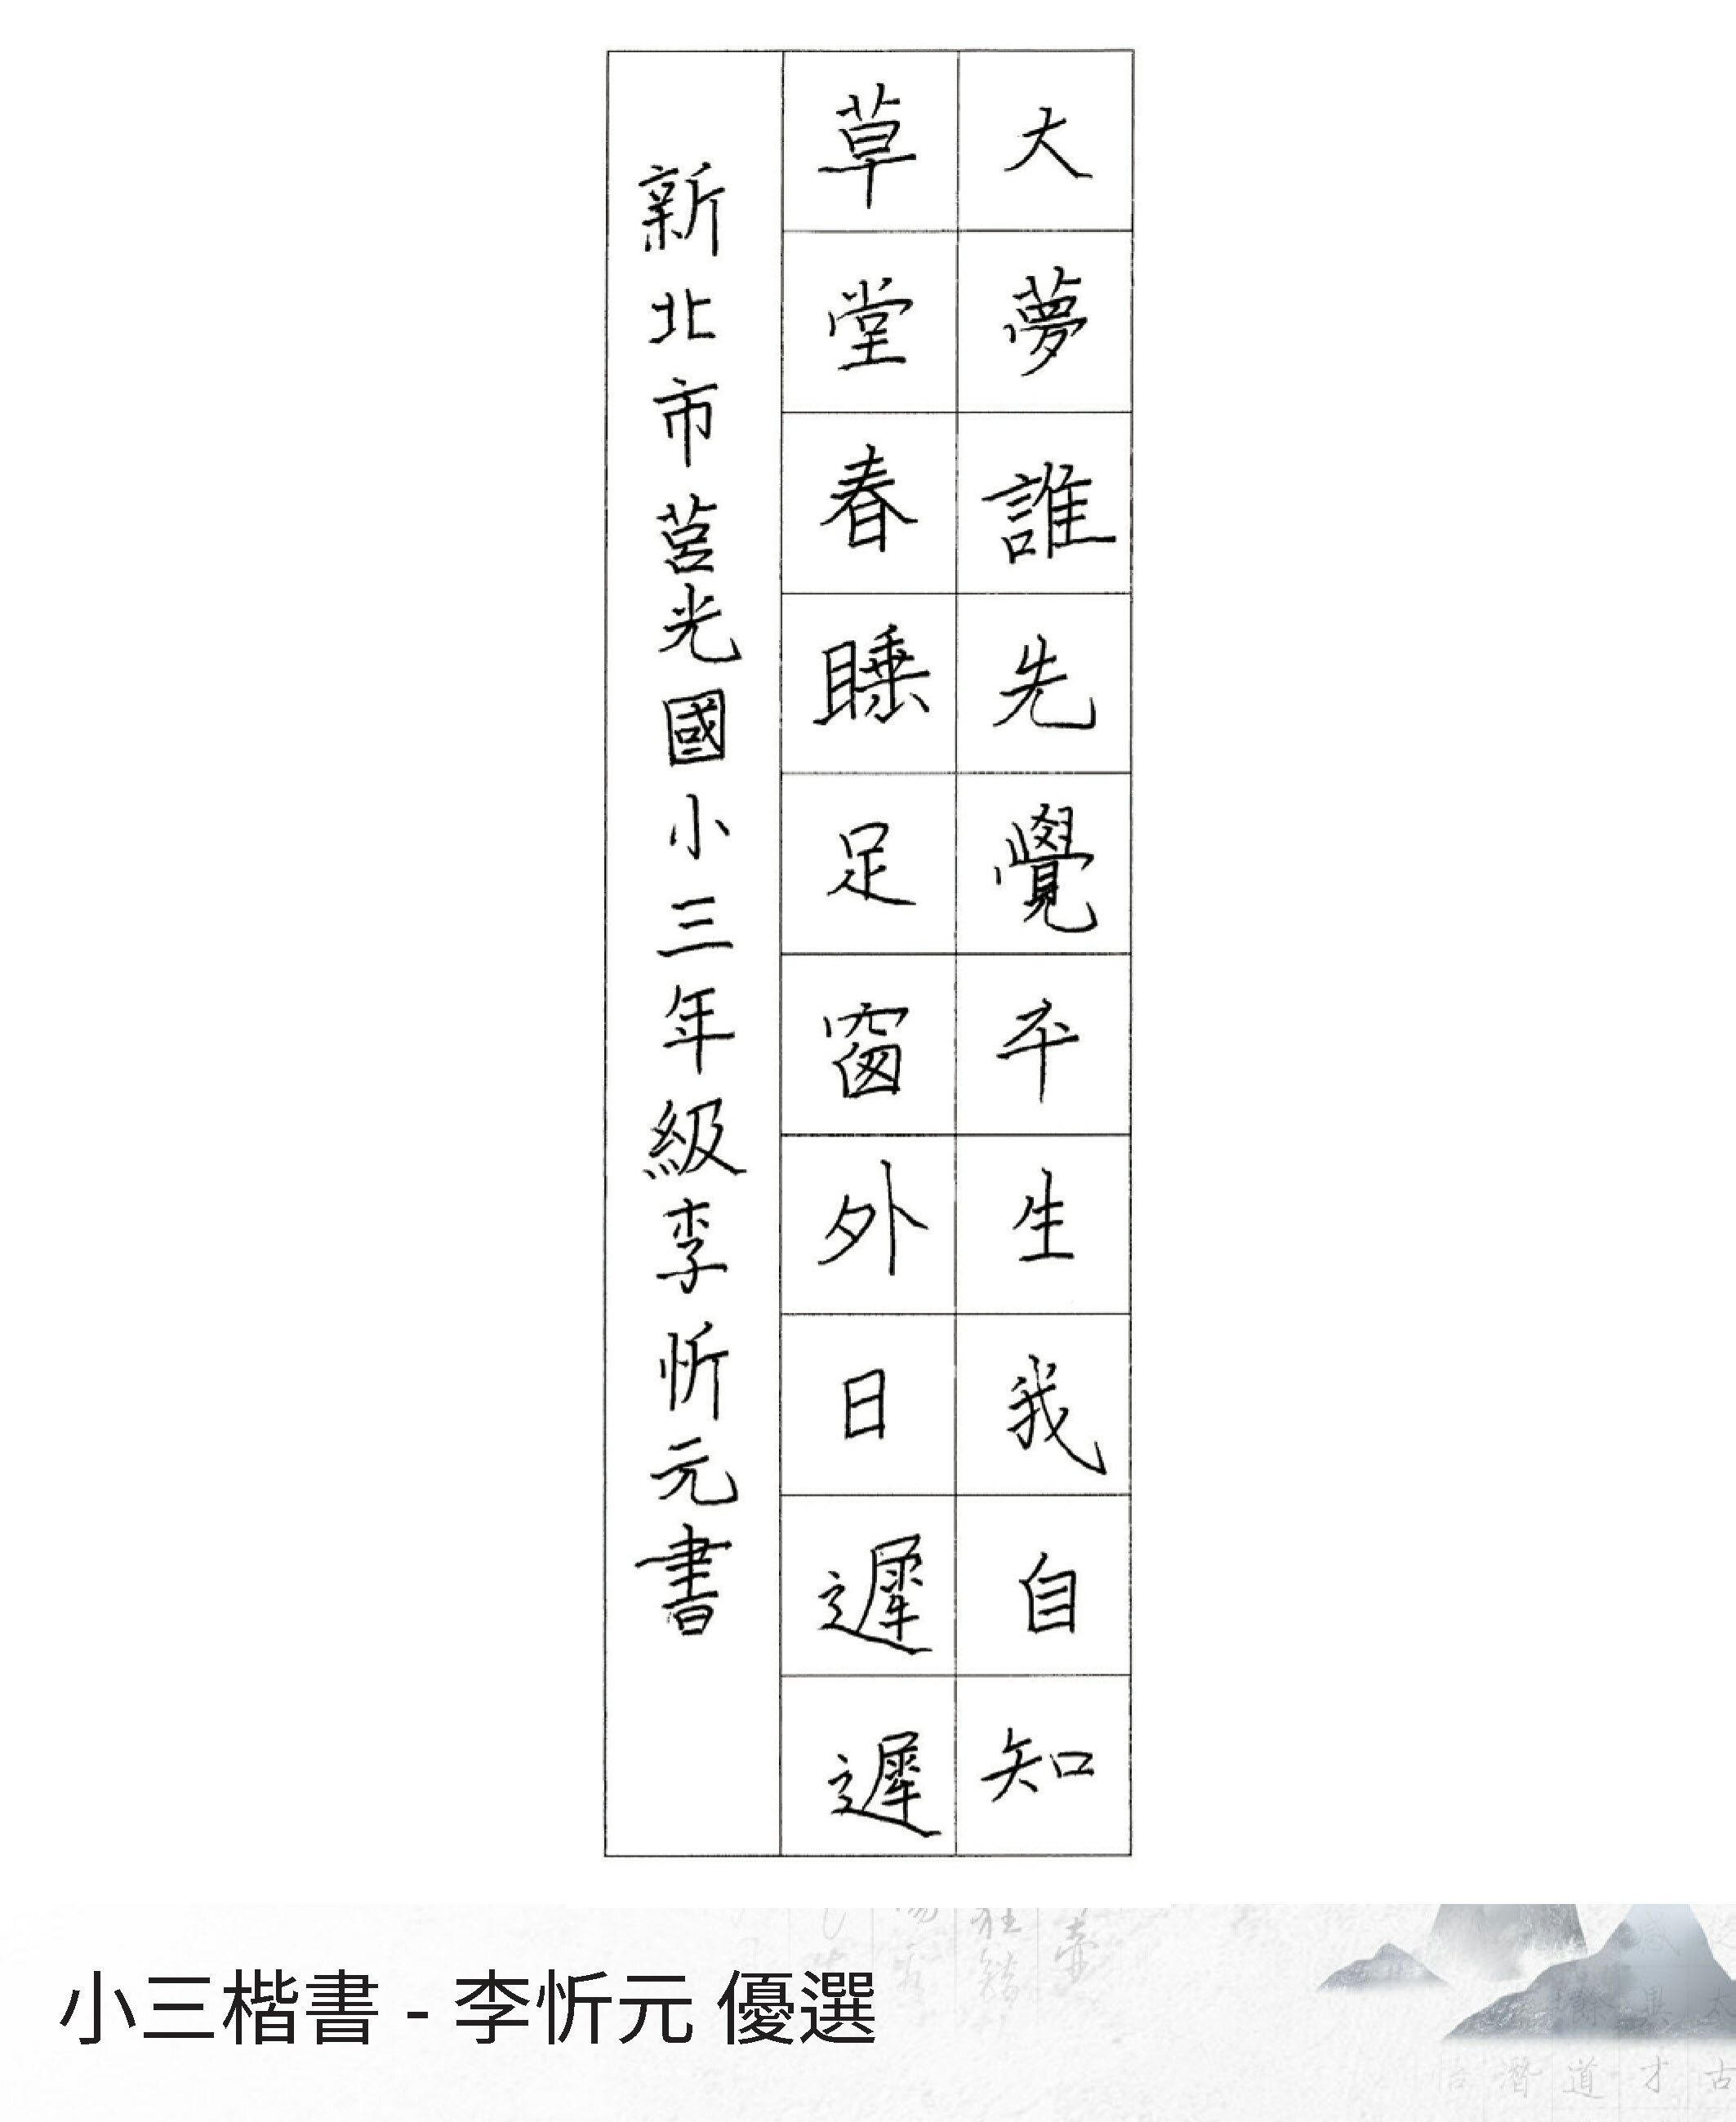 大夢誰先覺平生我自知
草堂春睡足窗外日遲遲
新北市莒光國小三年級李忻元書
小三楷書 - 李忻元 優選